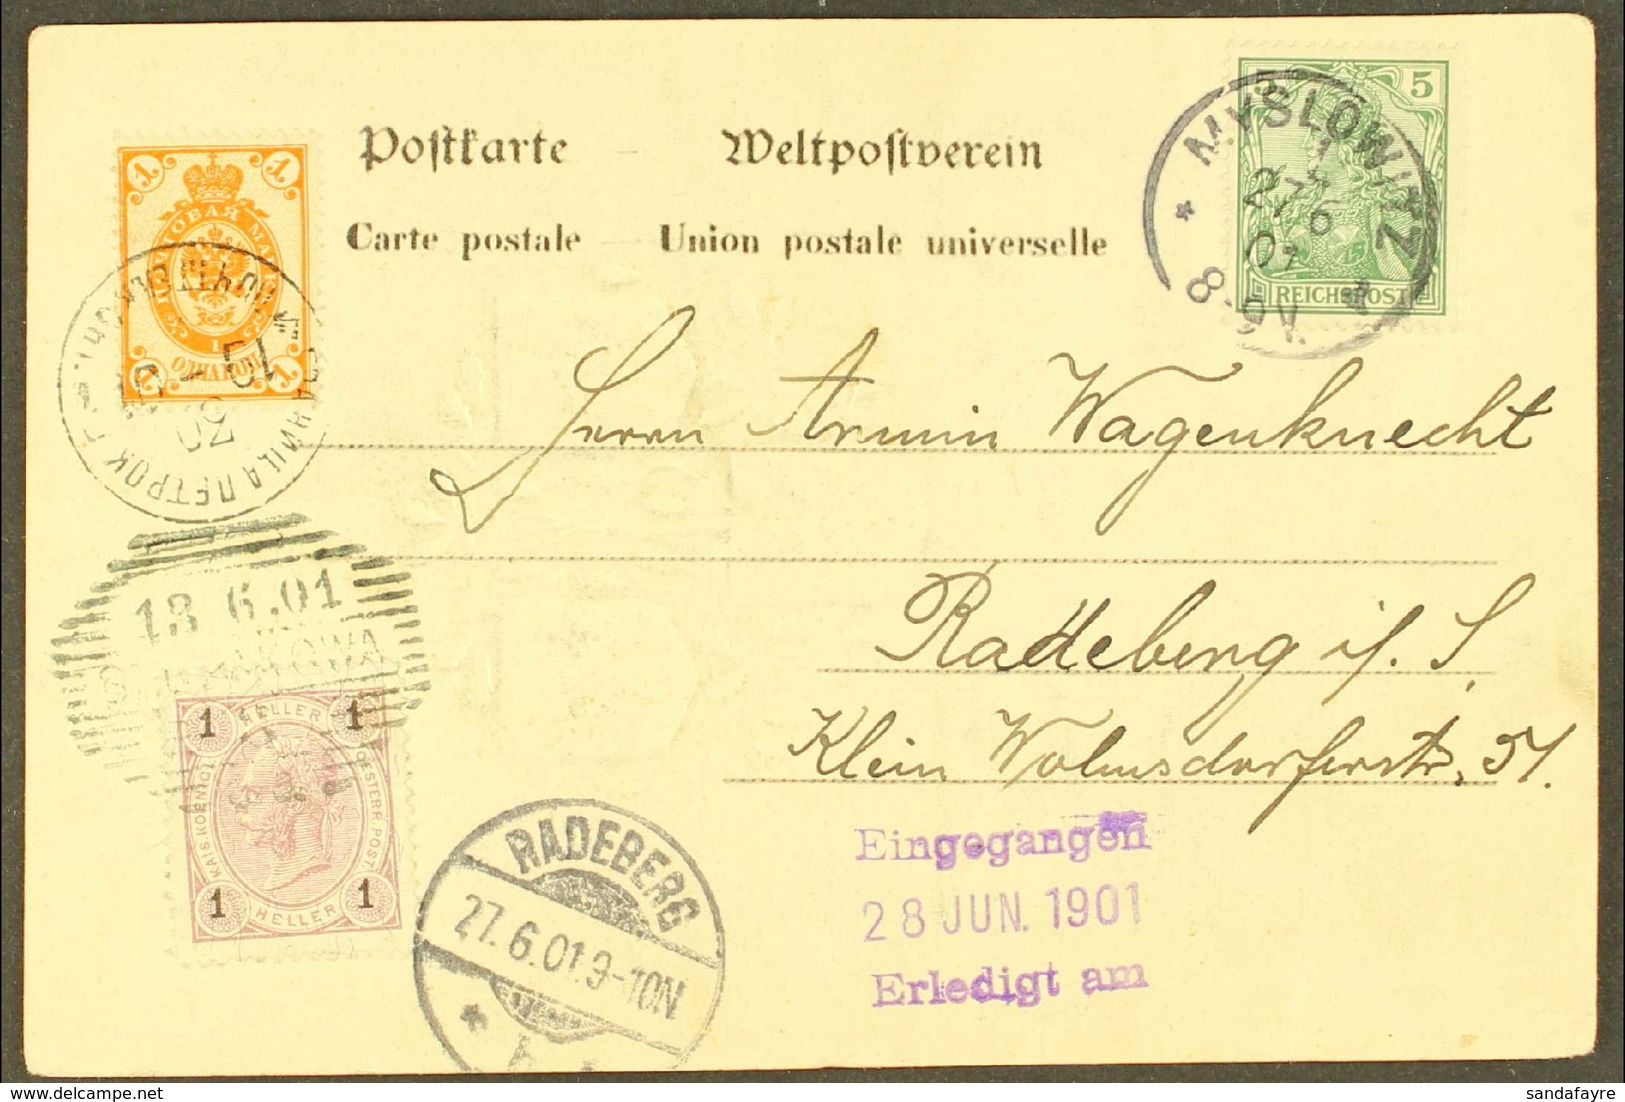 Postkarte Weltpostverein
Carte postale Union postale universelle
1 1
1 1
5 5
REICHSPOST
MYSLOWITZ
27 6
01
8-9V.
Herrn Armin Wagenknecht
Radeberg i/. S.
Klein Wolmsdorferstr. 51.
18 6.01
1 HELLER 1
KAIS. KOENIGL. OESTERR. POST
1 HELLER 1
RADEBERG
27. 6.01.9-10N
Eingegangen
28 JUN. 1901
Erledigt am
sandafayre
delcampe.net
sandafayre